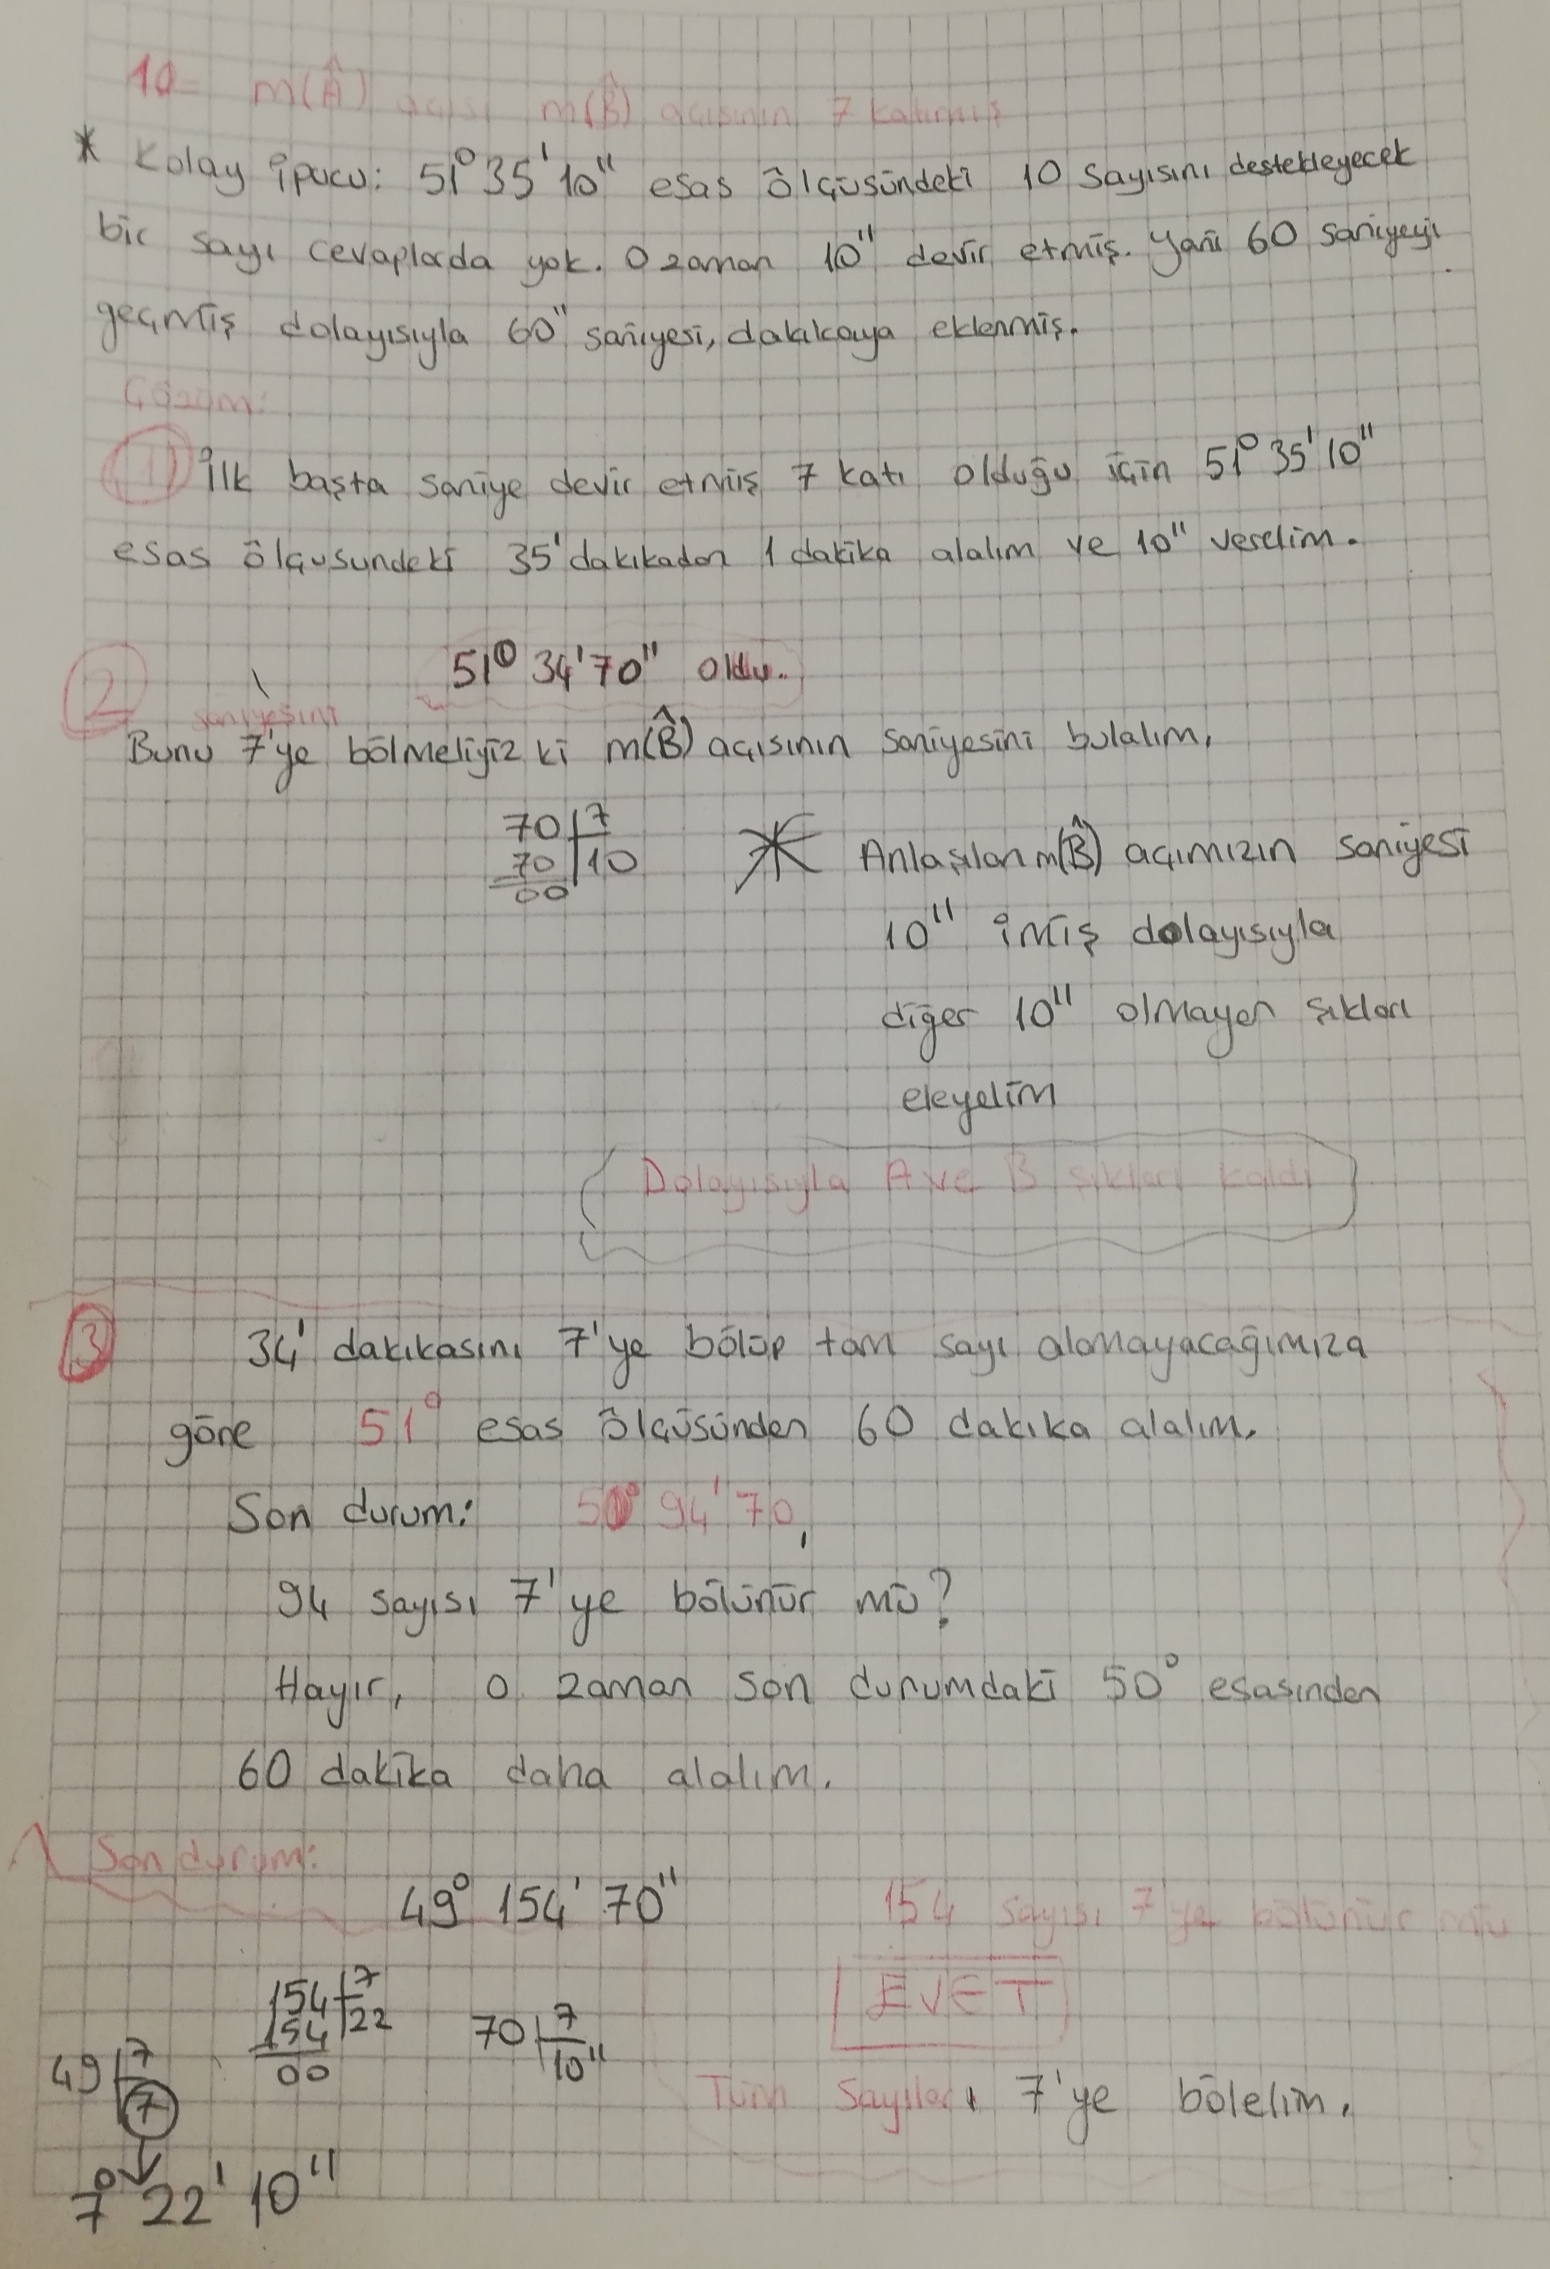 10- m(Â) açısı m(B̂) açısının 7 katıymış
* Kolay ipucu: 51° 35' 10" esas ölçüsündeki 10 sayısını destekleyecek
bir sayı cevaplarda yok. O zaman 10" devir etmiş. Yani 60 saniyeyi
geçmiş dolayısıyla 60" saniyesi, dakikaya eklenmiş.
Çözüm:
1) ilk başta saniye devir etmiş 7 katı olduğu için 51° 35' 10"
esas ölçüsündeki 35' dakikadan 1 dakika alalım ve 10" verelim.
51° 34' 70" oldu.
2 saniyesini
Bunu 7'ye bölmeliyiz ki m(B̂) açısının saniyesini bulalım.
70 | 7
70 | 10
00
* Anlaşılan m(B̂) açımızın saniyesi
10" imiş dolayısıyla
diğer 10" olmayan şıkları
eleyelim
Dolayısıyla A ve B şıkları kaldı
3 34' dakikasını 7'ye bölüp tam sayı alamayacağımıza
göre 51° esas ölçüsünden 60 dakika alalım.
Son durum: 50° 94' 70,
94 sayısı 7'ye bölünür mü?
Hayır, o zaman son durumdaki 50° esasından
60 dakika daha alalım.
Son durum:
49° 154' 70"
154 sayısı 7'ye bölünür mü
EVET
154 | 7
154 | 22
00
70 | 7
10"
49 | 7
7
Tüm Sayıları 7'ye bölelim.
7° 22' 10"